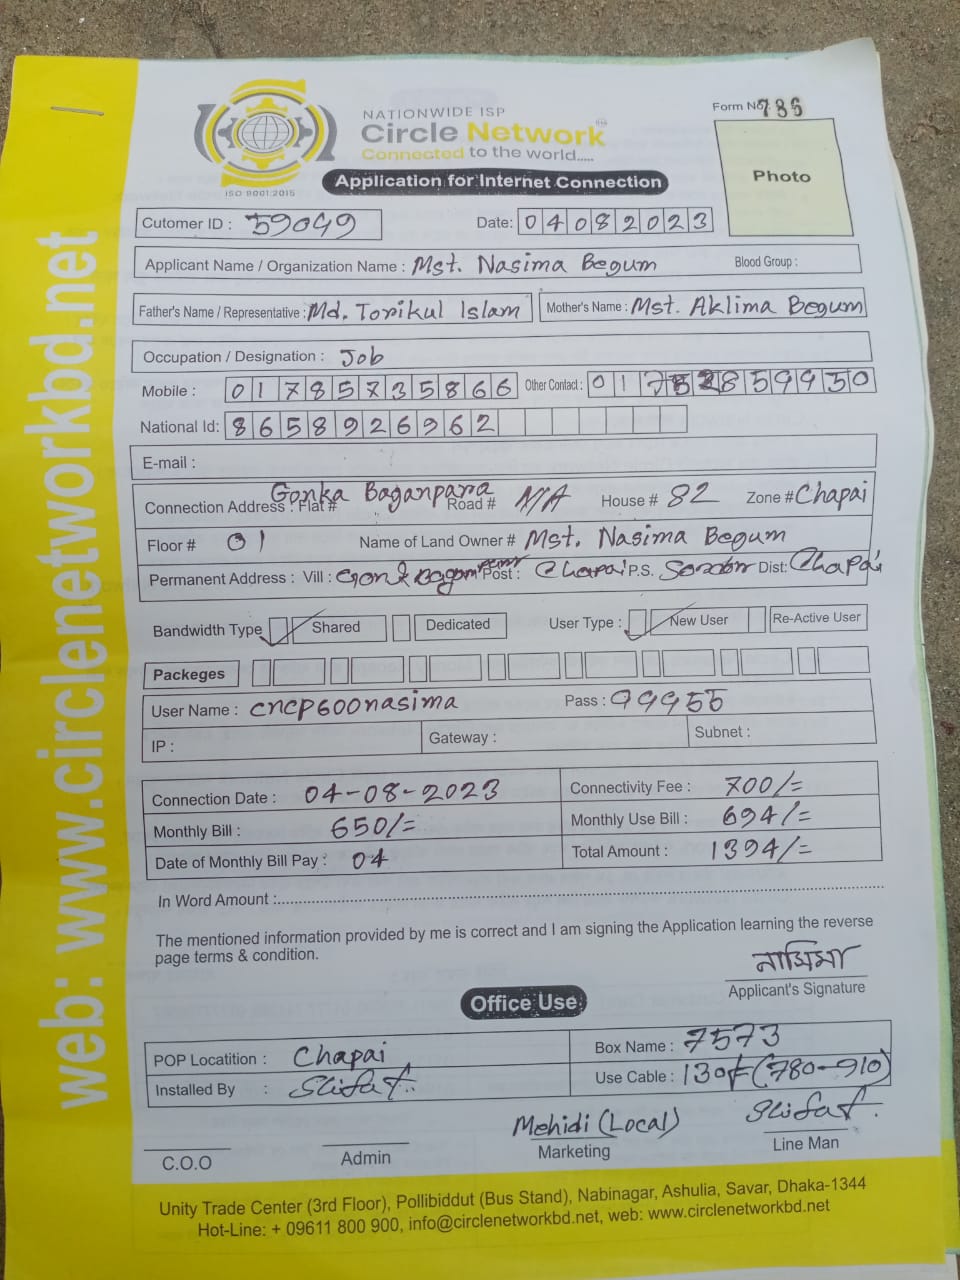 web: www.circlenetworkbd.net
NATIONWIDE ISP
Circle Network
Connected to the world.....
ISO 9001:2015
Form No: 786
Photo
Application for Internet Connection
Cutomer ID : 59049 Date: 04082023
Applicant Name / Organization Name : Mst. Nasima Begum Blood Group :
Father's Name / Representative : Md. Torikul Islam Mother's Name : Mst. Aklima Begum
Occupation / Designation : Job
Mobile : 01785735866 Other Contact : 017 859950
National Id: 8658926962
E-mail :
Connection Address : Flat # Gonka Baganpara Road # N/A House # 82 Zone # Chapai
Floor # 01 Name of Land Owner # Mst. Nasima Begum
Permanent Address : Vill : Post : Chapai P.S. Dist: Chapai
Bandwidth Type Shared Dedicated User Type : New User Re-Active User
Packeges
User Name : cncp600nasima Pass : 99955
IP : Gateway : Subnet :
Connection Date : 04-08-2023 Connectivity Fee : 700/=
Monthly Bill : 650/= Monthly Use Bill : 694/=
Date of Monthly Bill Pay : 04 Total Amount : 1394/=
In Word Amount :
The mentioned information provided by me is correct and I am signing the Application learning the reverse
page terms & condition.
নাসিমা
Applicant's Signature
Office Use
POP Locatition : Chapai Box Name : 7573
Installed By : Use Cable : (780-910)
Mehidi (Local)
C.O.O Admin Marketing Line Man
Unity Trade Center (3rd Floor), Pollibiddut (Bus Stand), Nabinagar, Ashulia, Savar, Dhaka-1344
Hot-Line: + 09611 800 900, info@circlenetworkbd.net, web: www.circlenetworkbd.net